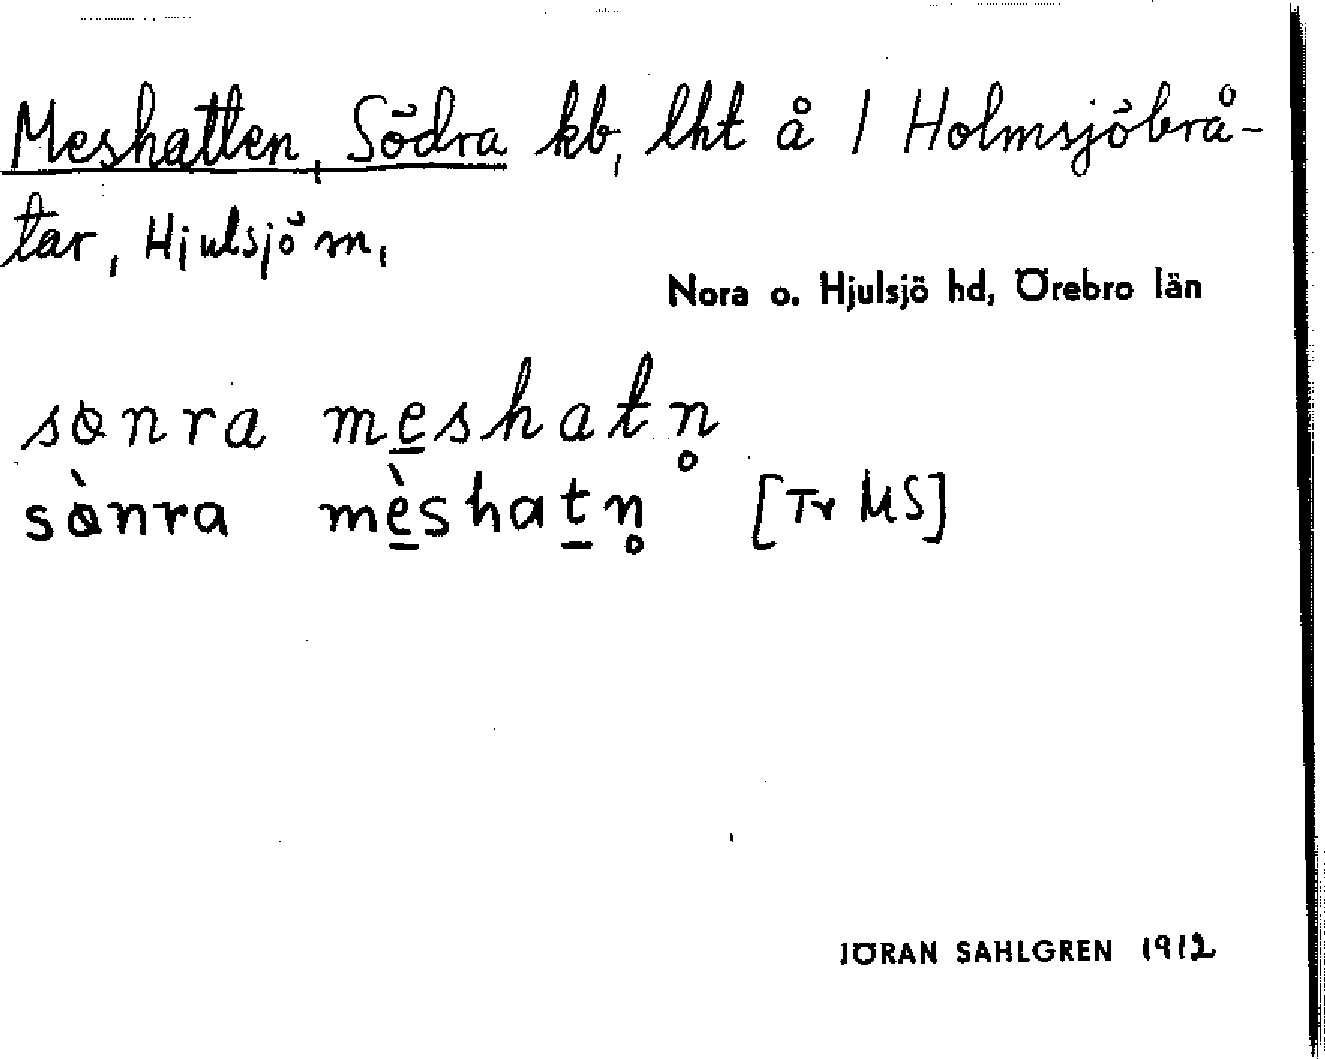 Meshatten, Södra kb, lht å 1 Holmsjöbrå-
tar, Hjulsjö m,
Nora o. Hjulsjö hd, Örebro län
sɵnra me̲shatn̥
sɵ̀nra mè̲shat̲n̥ [Tr MS]
JÖRAN SAHLGREN 1912